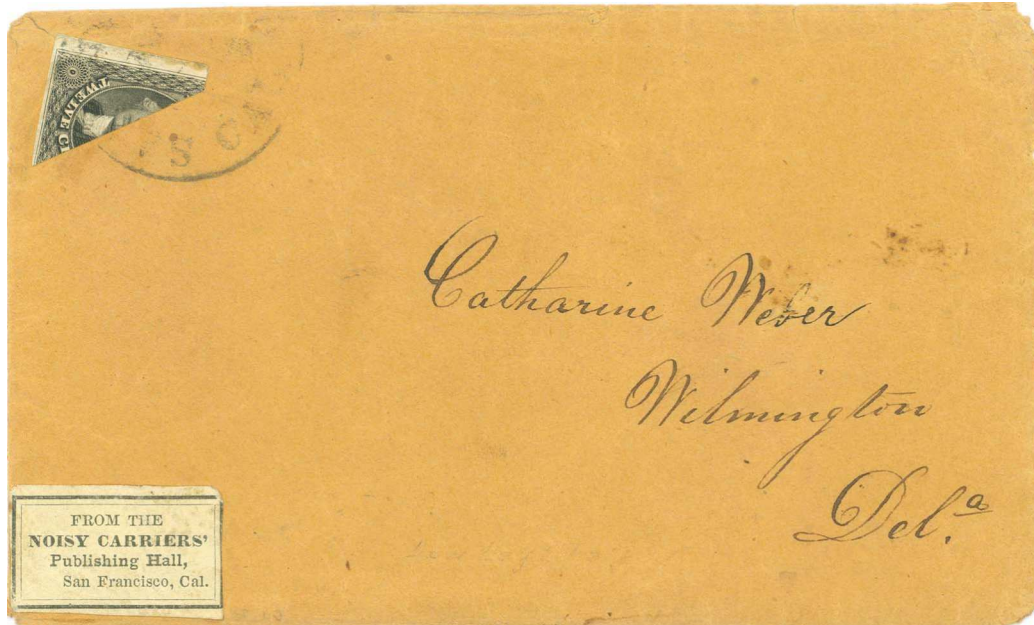 TWELVE C
S CA
Catharine Weber
Wilmington
Del.ª
FROM THE
NOISY CARRIERS'
Publishing Hall,
San Francisco, Cal.